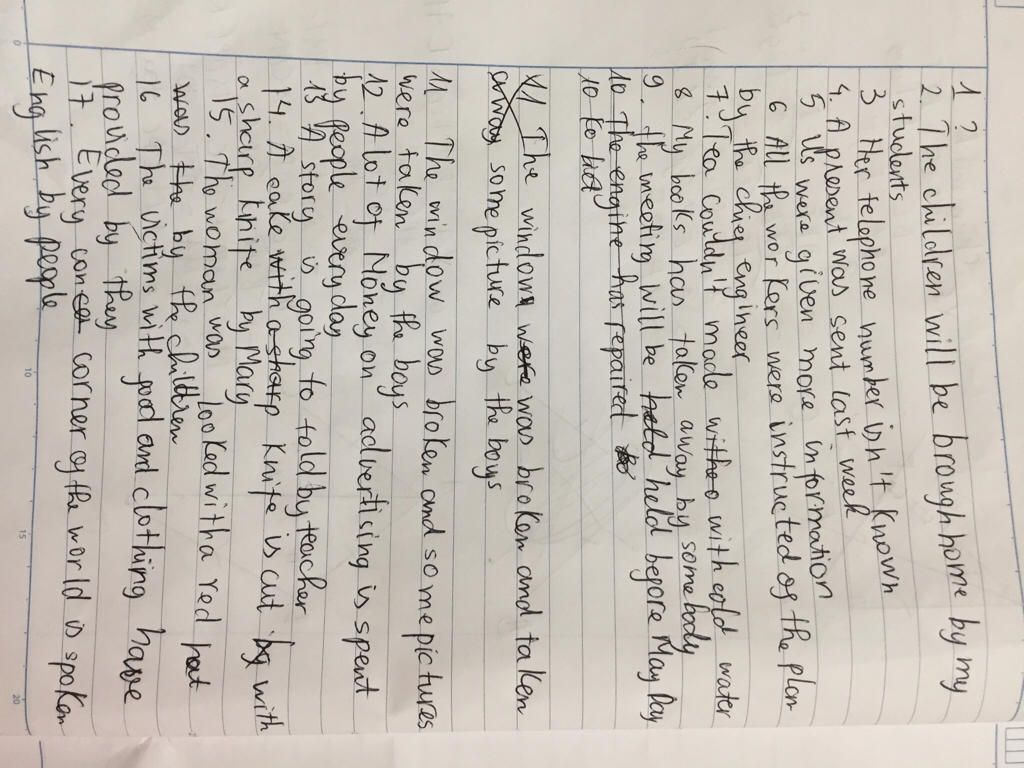 1 ?
2. The children will be brough home by my
students
3 Her telephone number isn't Known
4. A present was sent last week
5 Us were given more information
6 All the workers were instructed of the plan
by the chief engineer
7. Tea couldn't made witho with cold water
8 My books has taken away by somebody
9. The meeting will be held held before May Day
10 The engine has repaired
10 ko bid
11 The window were was broken and taken
away some picture by the boys
11 The window was broken and some pictures
were taken by the boys
12. A lot of Money on advertising is spent
by people everyday
13 A story is going to told by teacher
14. A cake with a sharp knife is cut by with
a sharp knife by Mary
15. The woman was looked with a red hat
was the by the children
16 The victims with food and clothing have
provided by they
17. Every corner of the world is spoken
English by people
0
10
15
20